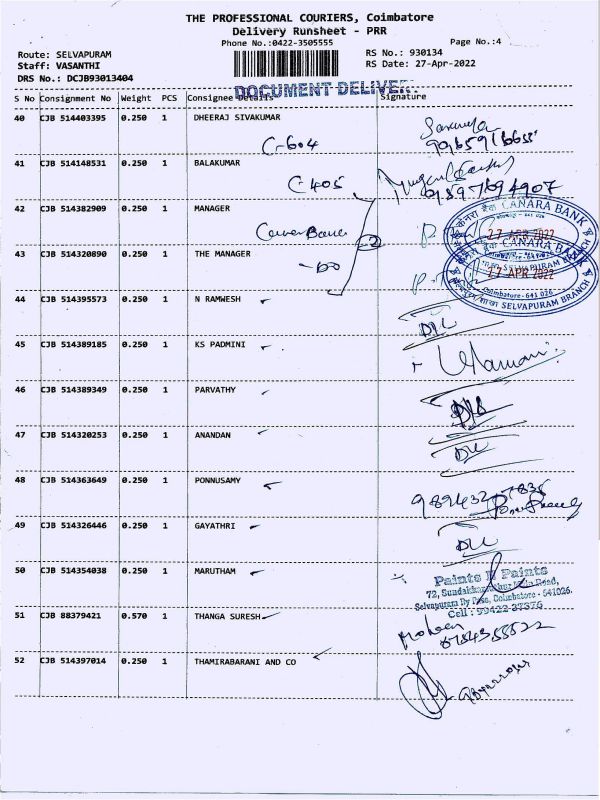 THE PROFESSIONAL COURIERS, Coimbatore
Delivery Runsheet - PRR
Phone No.:0422-3505555
Page No.:4
Route: SELVAPURAM
RS No.: 930134
Staff: VASANTHI
RS Date: 27-Apr-2022
DRS No.: DCJB93013404
DOCUMENT DELIVER
S No Consignment No Weight PCS Consignee Details Signature
40 CJB 514403395 0.250 1 DHEERAJ SIVAKUMAR
C-604
41 CJB 514148531 0.250 1 BALAKUMAR
C-405
42 CJB 514382909 0.250 1 MANAGER
CANARA BANK
27 APR 2022
43 CJB 514320890 0.250 1 THE MANAGER
-DO
CANARA BANK
27 APR 2022
Coimbatore - 641 026
SELVAPURAM BRANCH
44 CJB 514395573 0.250 1 N RAMWESH
45 CJB 514389185 0.250 1 KS PADMINI
46 CJB 514389349 0.250 1 PARVATHY
47 CJB 514320253 0.250 1 ANANDAN
48 CJB 514363649 0.250 1 PONNUSAMY
49 CJB 514326446 0.250 1 GAYATHRI
50 CJB 514354038 0.250 1 MARUTHAM
Paints N Paints
Selvapuram By Pass, Coimbatore - 641026.
Cell : 99422 37376
51 CJB 88379421 0.570 1 THANGA SURESH
52 CJB 514397014 0.250 1 THAMIRABARANI AND CO